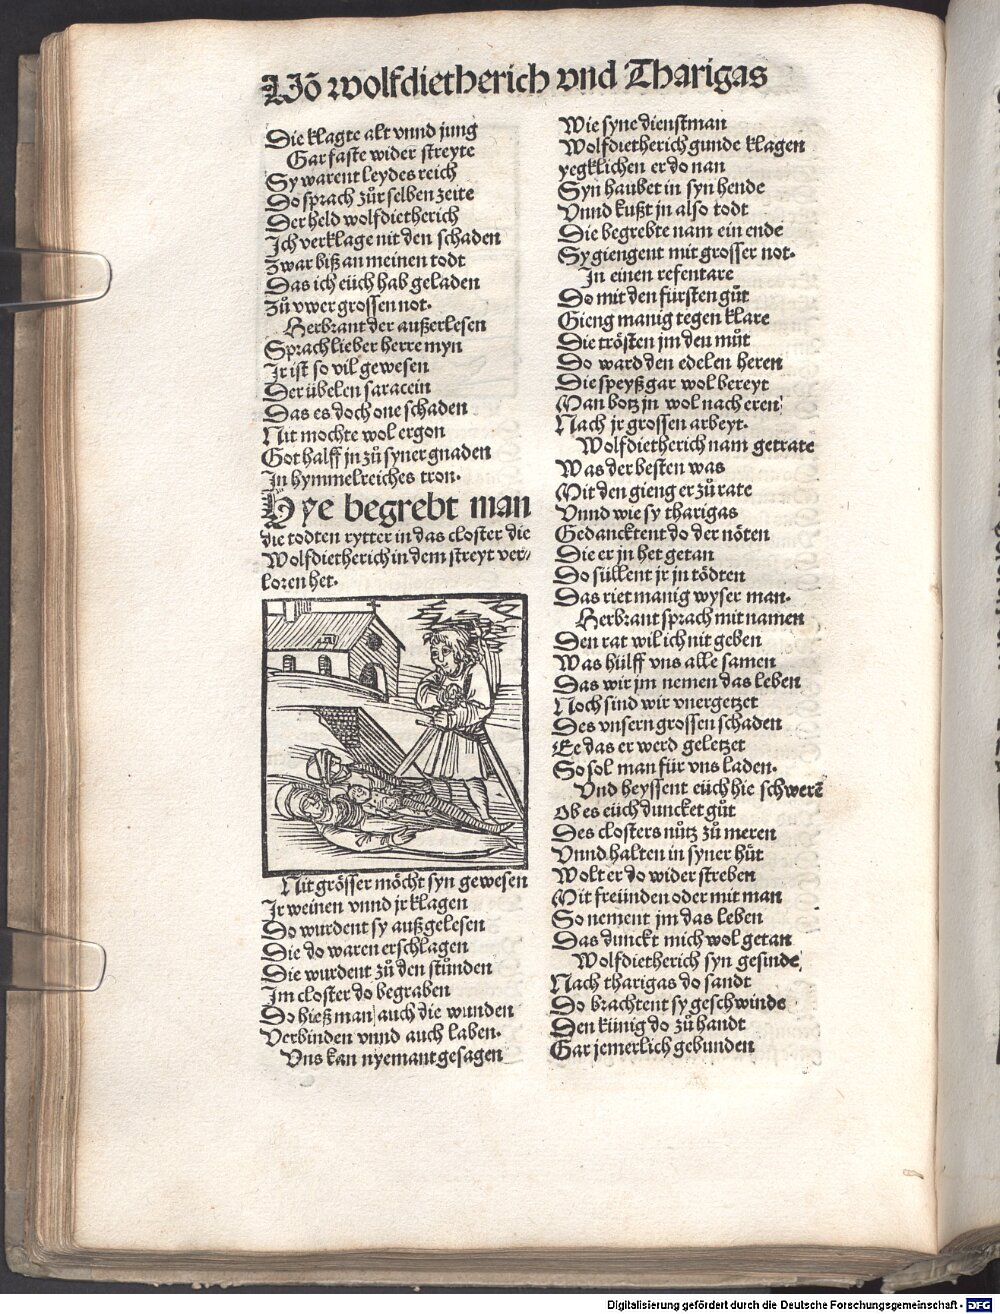 Võ wolfdietherich vnd Tharigas
Die klagte alt vnnd jung
Gar faste wider streyte
Sy warent leydes reich
Do sprach zůr selben zeite
Der held wolfdietherich
Ich verklage nit den schaden
Zwar biß an meinen todt
Das ich eüch hab geladen
Zů vwer grossen not.
Herbrant der außerlesen
Sprach lieber herre myn
Ir ist so vil gewesen
Der übelen saracein
Das es doch one schaden
Nit mochte wol ergon
Got halff jn zů syner gnaden
In hymmelreiches tron.
Hye begrebt man
die todten rytter in das closter die
Wolfdietherich in dem streyt ver⸗
loren het.
Nit grösser möcht syn gewesen
Ir weinen vnnd jr klagen
Do wurdent sy außgelesen
Die do waren erschlagen
Die wurdent zů den stunden
Im closter do begraben
Do hieß man/ auch die wunden
Verbinden vnnd auch laben.
Vns kan nyemant gesagen
Wie syne dienstman
Wolfdietherich gunde klagen
yegklichen er do nan
Syn haubet in syn hende
Vnnd kußt jn also todt
Die begrebte nam ein ende
Sy giengent mit grosser not.
In einen refentare
Do mit den fürsten gůt
Gieng manig tegen klare
Die trösten jm den můt
Do ward den edelen heren
Die speyß gar wol bereyt
Man botz jn wol nach eren
Nach jr grossen arbeyt.
Wolfdietherich nam getrate
Was der besten was
Mit den gieng er zů rate
Vnnd wie sy tharigas
Gedancktent do der nöten
Die er jn het getan
Do süllent jr jn tödten
Das riet manig wyser man.
Herbrant sprach mit namen
Den rat wil ich nit geben
Was hülff vns alle samen
Das wir jm nemen das leben
Noch sind wir vnergetzet
Des vnsern grossen schaden
Ee das er werd geletzet
So sol man für vns laden.
Vnd heyssent eüch hie schwerē
Ob es eüch duncket gůt
Des closters nůtz zů meren
Vnnd halten in syner hůt
Wolt er do wider streben
Mit freünden oder mit man
So nement jm das leben
Das dunckt mich wol getan
Wolfdietherich syn gesinde
Nach tharigas do sandt
Do brachtent sy geschwinde
Den künig do zů handt
Gar jemerlich gebunden
Digitalisierung gefördert durch die Deutsche Forschungsgemeinschaft - DFG